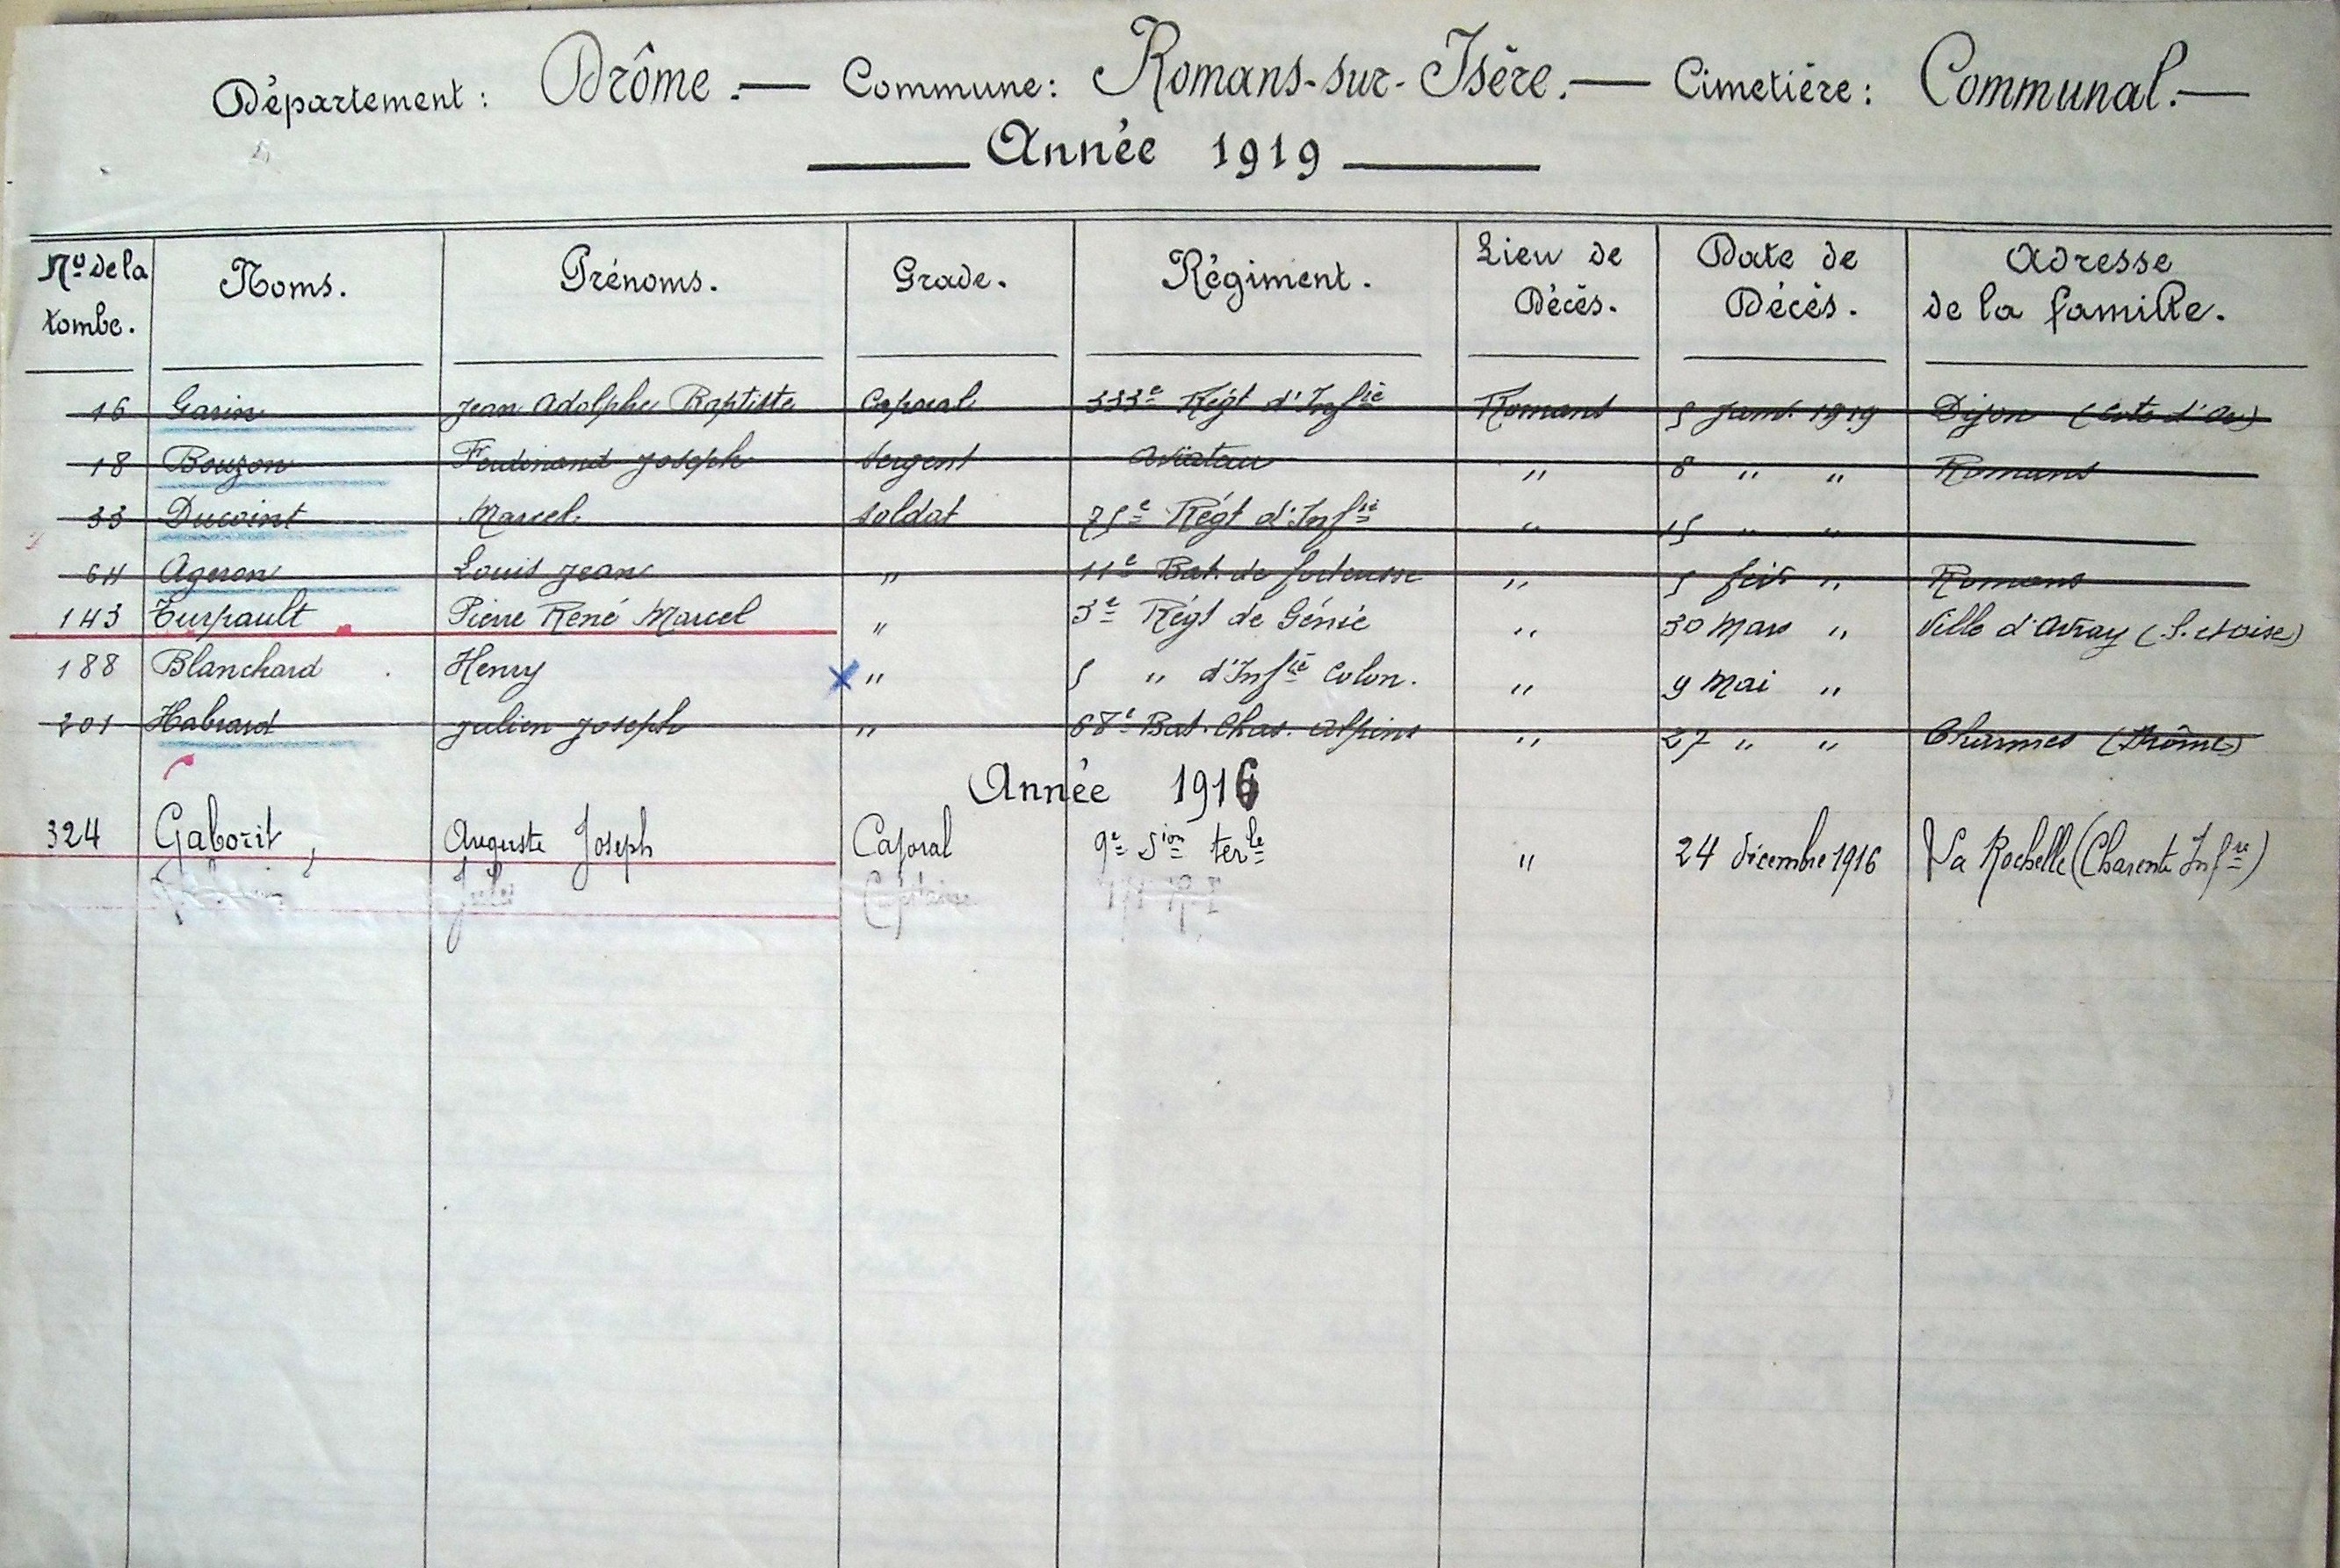 Département : Drôme. — Commune : Romans-sur-Isère. — Cimetière : Communal. —
Année 1919
Nº de la tombe. Noms. Prénoms. Grade. Régiment. Lieu de Décès. Date de Décès. Adresse de la famille.
16 Garin Jean Adolphe Baptiste Caporal 333e Régt d'Infie Romans 5 Janv. 1919 Dijon (Cote d'Or)
18 Bouzon Ferdinand Joseph Sergent Aviateur " 8 " " Romans
33 Ducoint Marcel. Soldat 75e Régt d'Infie " 15 " "
64 Ageron Louis Jean " 11e Bat. de forteresse " 5 fév. " Romans
143 Turpault Pierre René Marcel " 3e Régt de Génie " 30 Mars " Ville d'Avray (S. et Oise)
188 Blanchard Henry " 5 " d'Infie Colon. " 9 Mai "
201 Habrard Julien Joseph " 68e Bat. Chas. Alpins " 27 " " (Drôme)
Année 1916
324 Gaborit, Auguste Joseph Caporal 9e Sion terle " 24 décembre 1916 La Rochelle (Charente Infre)
Jules Capitaine